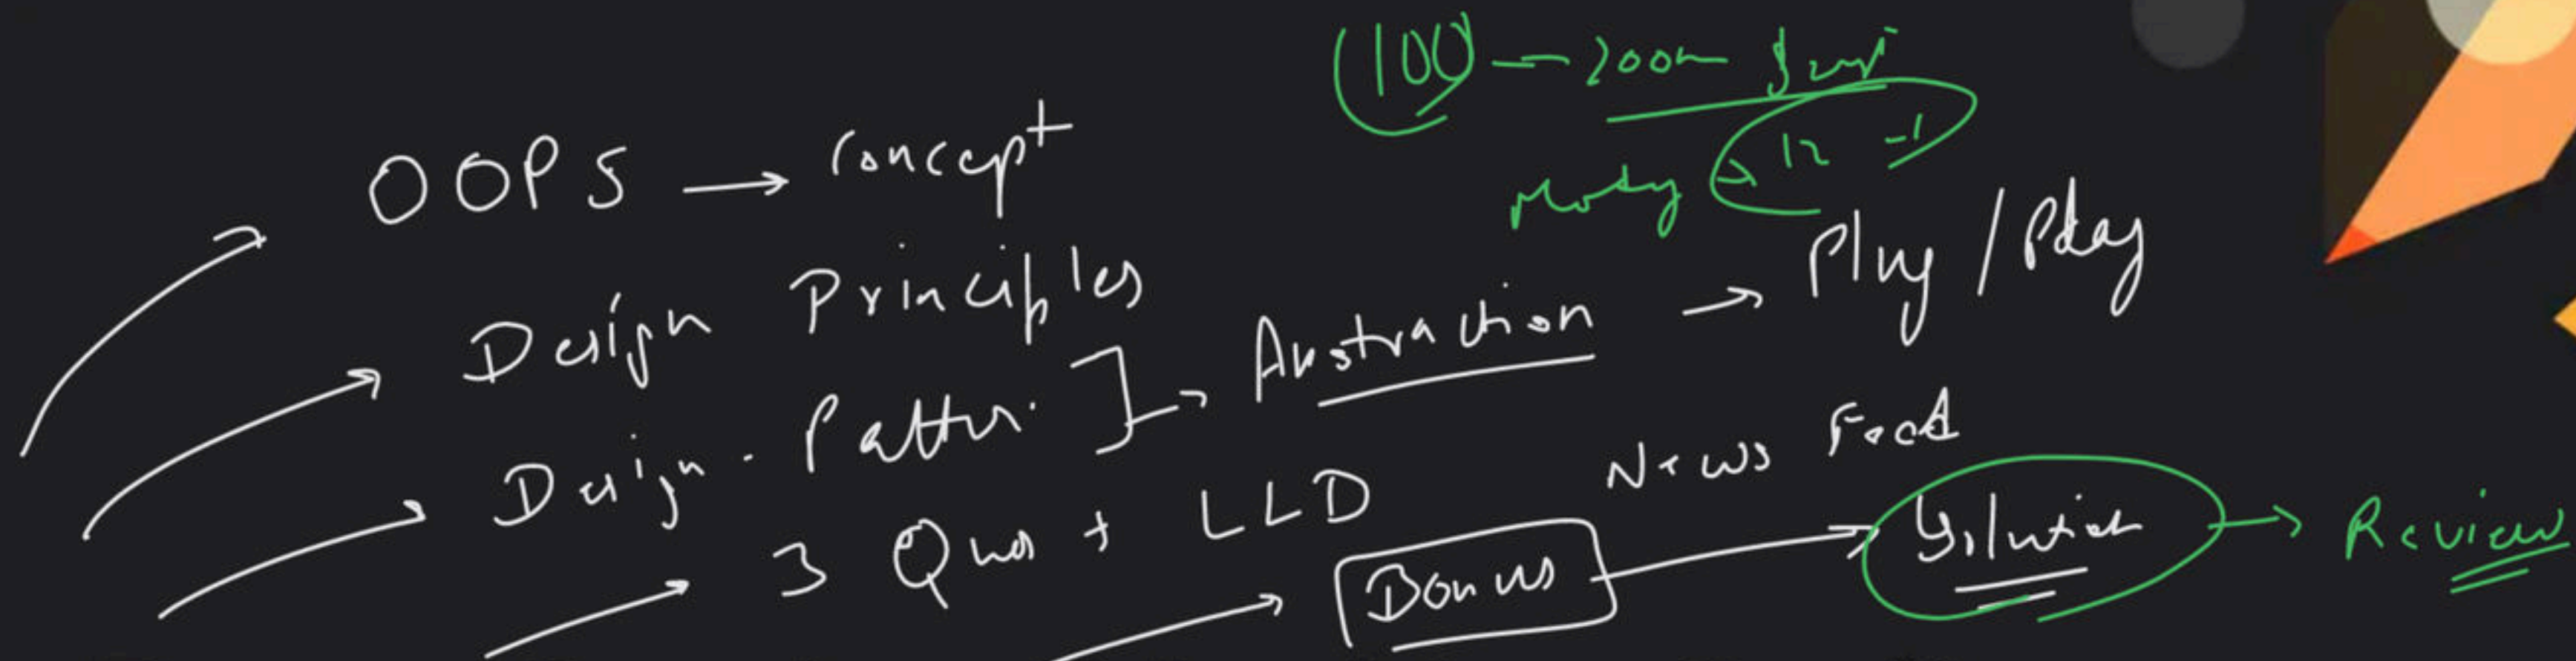 (100) — 200m
→ 12 -1
OOPS → Concept
Design Principles
Design. Patter. ] → Abstraction → Plug / Play
3 Ques + LLD
News Feed
Bonus → Solution → Review